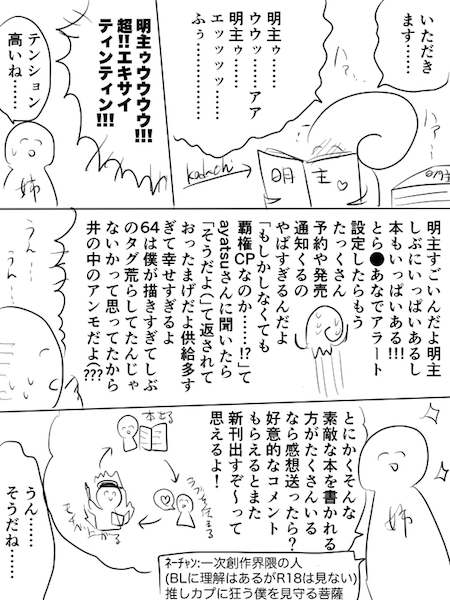 いただき
ます……
明主ゥ……
ウウッ……アア
明主ゥ……
エッッッッ……
ふぅ……
ハア…
ハァ…?
kadachi
明主♡
明主
明主ゥウウウウ!!!
超!!エキサイ
ティンティン!!!
テンション
高いね……
姉
明主すごいんだよ明主
しぶにいっぱいあるし
本もいっぱいある!!!
とら●あなでアラート
設定したらもう
たっくさん
予約や発売
通知くるの
やばすぎるんだよ
「もしかしなくても
覇権CPなのか……!?」て
ayatsuさんに聞いたら
「そうだよ(」て返されて
おったまげだよ供給多す
ぎて幸せすぎるよ
64は僕が描きすぎてしぶ
のタグ荒らしてたんじゃ
ないかって思ってたから
井の中のアンモだよ(???
うん…
うん…
とにかくそんな
素敵な本を書かれる
方がたくさんいる
なら感想送ったら?
好意的なコメント
もらえるとまた
新刊出すぞ〜って
思えるよ!
姉
本でる
やる気でる
うん……
そうだね……
ﾈｰﾁｬﾝ:一次創作界隈の人
(BLに理解はあるがR18は見ない)
推しカプに狂う僕を見守る菩薩